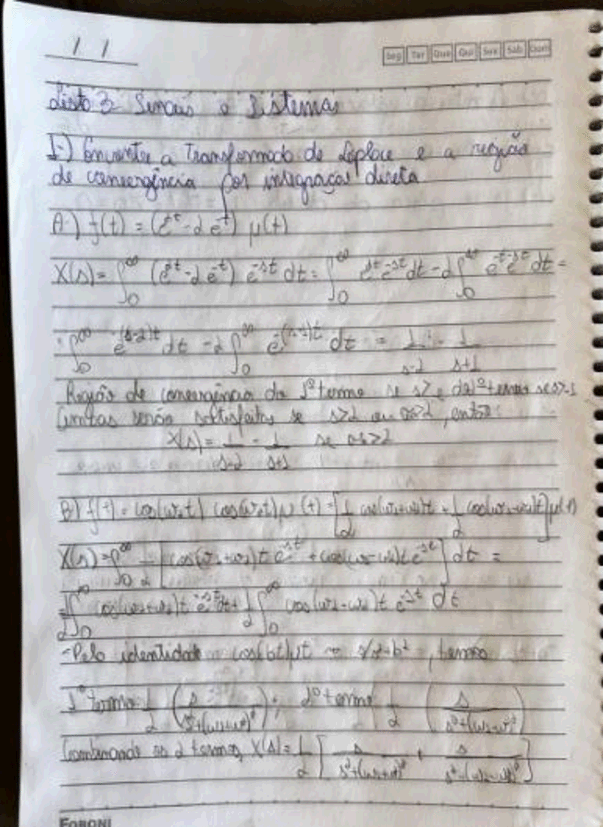 / /
Seg Ter Qua Qui Sex Sáb Dom
Lista 3 Sinais e Sistemas
1-) Encontre a Transformada de Laplace e a região
de convergência por integração direta
A-) f(t) = (e^2t - 2e^-t) μ(t)
X(s) = ∫₀^∞ (e^2t - 2e^-t) e^-st dt = ∫₀^∞ e^2t e^-st dt - 2∫₀^∞ e^-t e^-st dt =
∫₀^∞ e^-(s-2)t dt - 2∫₀^∞ e^-(s+1)t dt = 1/(s-2) - 1/(s+1)
Região de convergência do 1º termo se s>2 e do 2º termo se s>-1
Juntas serão satisfeitas se s>2 ou σ>2, então:
X(s) = 1/(s-2) - 1/(s+1) se σ>2
B) f(t) = cos(ω₁t) cos(ω₂t) μ(t) = [1/2 cos(ω₁+ω₂)t + 1/2 cos(ω₁-ω₂)t] μ(t)
X(s) = ∫₀^∞ 1/2 [cos(ω₁+ω₂)t e^-st + cos(ω₁-ω₂)t e^-st] dt =
1/2 ∫₀^∞ cos(ω₁+ω₂)t e^-st dt + 1/2 ∫₀^∞ cos(ω₁-ω₂)t e^-st dt
-Pela identidade cos(bt)μt = s/s²+b², temos
1º termo: 1/2 (s/(s²+(ω₁+ω₂)²)); 2º termo 1/2 (s/(s²+(ω₁-ω₂)²))
Combinando os 2 termos, X(s) = 1/2 [s/(s²+(ω₁+ω₂)²) + s/(s²+(ω₁-ω₂)²)]
FORONI